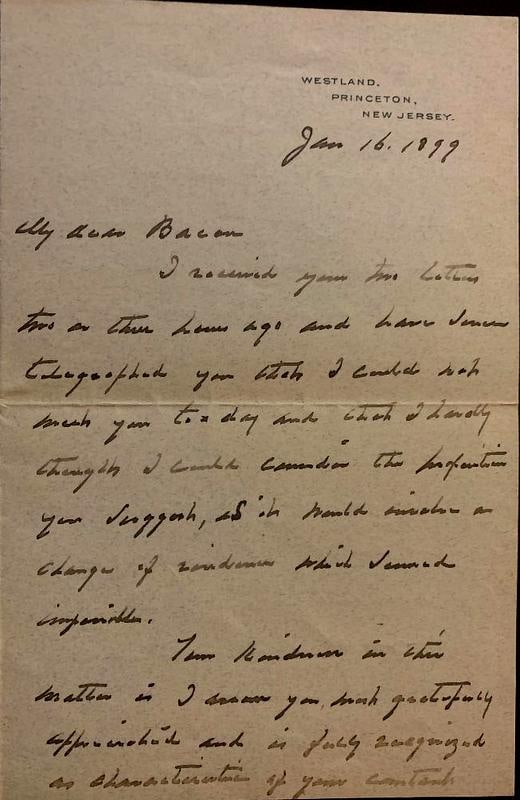 WESTLAND.
PRINCETON,
NEW JERSEY.
Jan 16. 1899
My dear Bacon
I received your two letters
two or three hours ago and have since
telegraphed you that I could not
meet you to-day and that I hardly
thought I could consider the proposition
you suggest, as it would involve a
change of residence which seemed
impossible.
Your kindness in this
matter is I assure you most gratefully
appreciated and is fully recognized
as characteristic of your constant